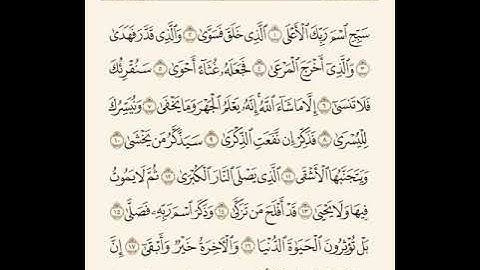 سَبِّحِ ٱسْمَ رَبِّكَ ٱلْأَعْلَى ١ ٱلَّذِى خَلَقَ فَسَوَّىٰ ٢ وَٱلَّذِى قَدَّرَ فَهَدَىٰ
٣ وَٱلَّذِىٓ أَخْرَجَ ٱلْمَرْعَىٰ ٤ فَجَعَلَهُۥ غُثَآءً أَحْوَىٰ ٥ سَنُقْرِئُكَ
فَلَا تَنسَىٰٓ ٦ إِلَّا مَا شَآءَ ٱللَّهُ ۚ إِنَّهُۥ يَعْلَمُ ٱلْجَهْرَ وَمَا يَخْفَىٰ ٧ وَنُيَسِّرُكَ
لِلْيُسْرَىٰ ٨ فَذَكِّرْ إِن نَّفَعَتِ ٱلذِّكْرَىٰ ٩ سَيَذَّكَّرُ مَن يَخْشَىٰ ١٠
وَيَتَجَنَّبُهَا ٱلْأَشْقَى ١١ ٱلَّذِى يَصْلَى ٱلنَّارَ ٱلْكُبْرَىٰ ١٢ ثُمَّ لَا يَمُوتُ
فِيهَا وَلَا يَحْيَىٰ ١٣ قَدْ أَفْلَحَ مَن تَزَكَّىٰ ١٤ وَذَكَرَ ٱسْمَ رَبِّهِۦ فَصَلَّىٰ ١٥
بَلْ تُؤْثِرُونَ ٱلْحَيَوٰةَ ٱلدُّنْيَا ١٦ وَٱلْءَاخِرَةُ خَيْرٌ وَأَبْقَىٰٓ ١٧ إِنَّ